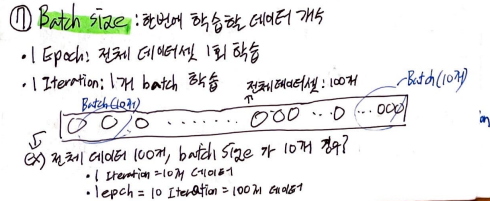 ⑦ Batch size : 한번에 학습할 데이터 개수
· 1 Epoch: 전체 데이터셋 1회 학습
· 1 Iteration: 1개 batch 학습
전체데이터셋: 100개
Batch(10개)
Batch(10개)
0 0 0 ....... 000 ... 0 ... 000
ex) 전체 데이터 100개, batch size 가 10개 경우?
· 1 Iteration = 10개 데이터
· 1 epch = 10 Iteration = 100개 데이터